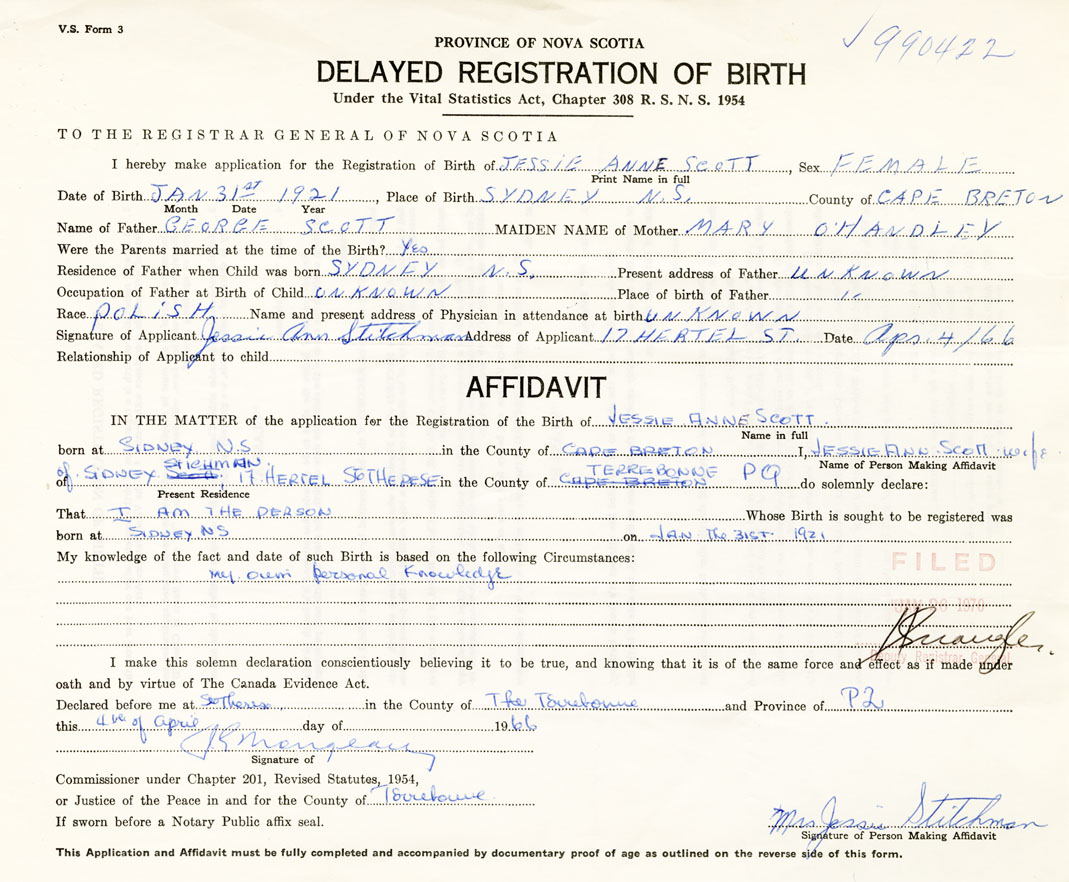 V.S. Form 3
990422
PROVINCE OF NOVA SCOTIA
DELAYED REGISTRATION OF BIRTH
Under the Vital Statistics Act, Chapter 308 R. S. N. S. 1954
TO THE REGISTRAR GENERAL OF NOVA SCOTIA
I hereby make application for the Registration of Birth of JESSIE ANNE SCOTT, Sex FEMALE
Print Name in full
Date of Birth JAN 31st 1921, Place of Birth SYDNEY N.S. County of CAPE BRETON
Month Date Year
Name of Father GEORGE SCOTT MAIDEN NAME of Mother MARY O'HANDLEY
Were the Parents married at the time of the Birth? Yes
Residence of Father when Child was born SYDNEY N.S. Present address of Father UNKNOWN
Occupation of Father at Birth of Child UNKNOWN Place of birth of Father "
Race POLISH Name and present address of Physician in attendance at birth UNKNOWN
Signature of Applicant Jessie Ann Stitchman Address of Applicant 17 HERTEL ST. Date Apr. 4/66
Relationship of Applicant to child
AFFIDAVIT
IN THE MATTER of the application for the Registration of the Birth of JESSIE ANNE SCOTT
Name in full
born at SIDNEY N.S. in the County of CAPE BRETON I, JESSIE ANN SCOTT wife
Name of Person Making Affidavit
of SIDNEY STICHMAN 17 HERTEL STE THERESE in the County of CAPE BRETON TERREBONNE PQ do solemnly declare:
Present Residence
That I AM THE PERSON Whose Birth is sought to be registered was
born at SIDNEY NS on JAN The 31ST 1921
My knowledge of the fact and date of such Birth is based on the following Circumstances:
my own personal Knowledge
FILED
1970
Deputy Registrar General
I make this solemn declaration conscientiously believing it to be true, and knowing that it is of the same force and effect as if made under
oath and by virtue of The Canada Evidence Act.
Declared before me at Ste Therese in the County of The Terrebonne and Province of PQ
this 4th of April day of 1966
Signature of
Commissioner under Chapter 201, Revised Statutes, 1954,
or Justice of the Peace in and for the County of Terrebonne
If sworn before a Notary Public affix seal.
Mrs Jessie Stitchman
Signature of Person Making Affidavit
This Application and Affidavit must be fully completed and accompanied by documentary proof of age as outlined on the reverse side of this form.